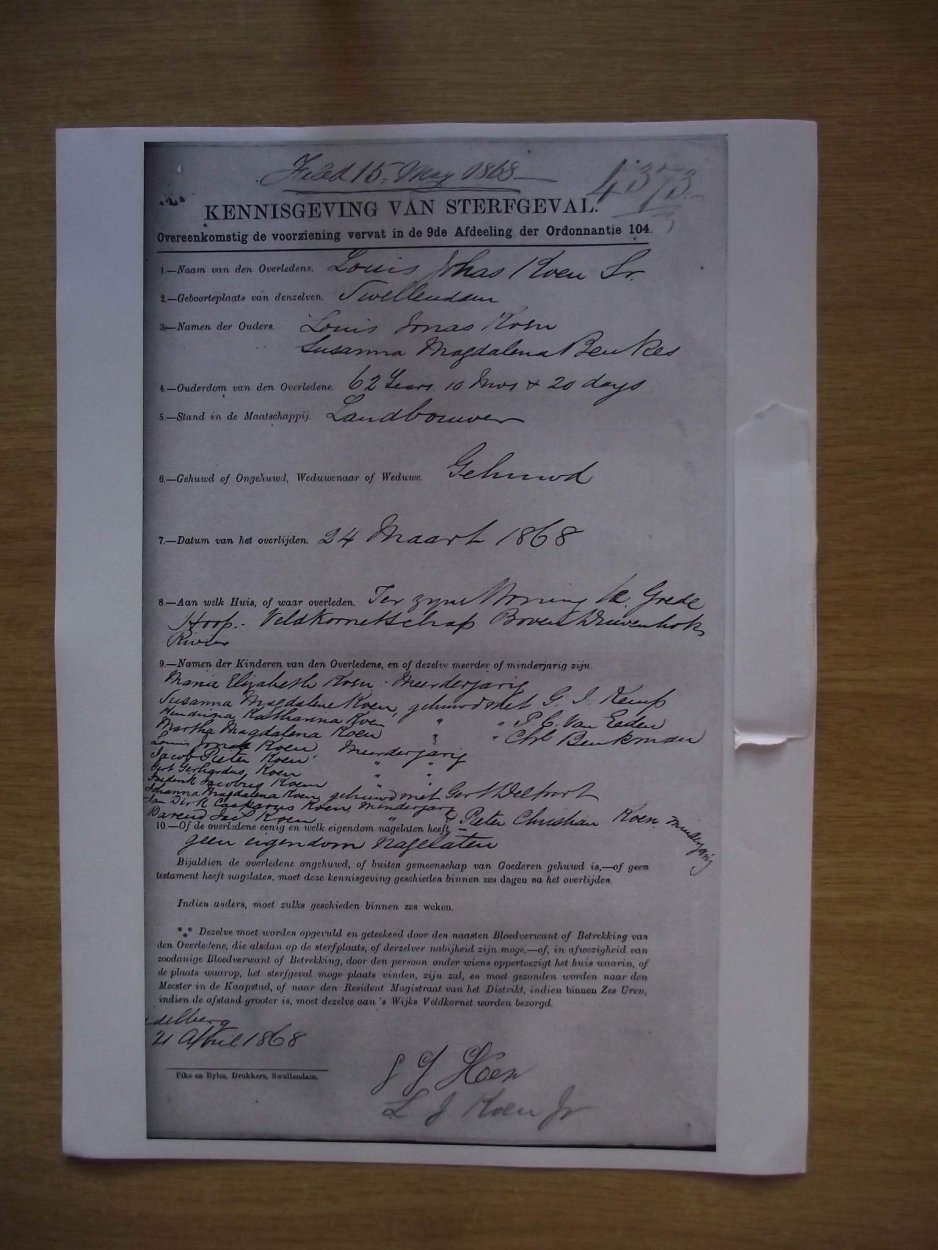 Filed 15 May 1868
4373
KENNISGEVING VAN STERFGEVAL.
Overeenkomstig de voorziening vervat in de 9de Afdeeling der Ordonnantie 104.
1.—Naam van den Overledene. Louis Jonas Koen Sr.
2.—Geboorteplaats van denzelven. Swellendam
3.—Namen der Ouders. Louis Jonas Koen
Susanna Magdalena Beukes
4.—Ouderdom van den Overledene. 62 Years 10 Mos & 20 days
5.—Stand in de Maatschappij. Landbouwer
6.—Gehuwd of Ongehuwd, Weduwenaar of Weduwe. Gehuwd
7.—Datum van het overlijden. 24 Maart 1868
8.—Aan welk Huis, of waar overleden. Ter zyne Woning de Goede
Hoop.- Veldkornetschap Boven Duivenhoks
Rivier
9.—Namen der Kinderen van den Overledene, en of dezelve meerder of minderjarig zijn.
Maria Elizabeth Koen - Meerderjarig
Susanna Magdalena Koen, gehuwd met G. J. Kemp
Hendrina Katharina Koen " " P. C. Van Eeden
Martha Magdalena Koen " " Chl Beukman
Louis Jonas Koen Meerderjarig
Jacob Pieter Koen " "
Gert Gerhardus Koen " "
Frederik Jacobus Koen " "
Johanna Magdalena Koen gehuwd met Gert Delport
Jan Dirk Casparus Koen Minderjarig
Barend Jac Koen " & Pieter Christian Koen minderjarig
10.—Of de overledene eenig en welk eigendom nagelaten heeft
geen eigendom nagelaten
Bijaldien de overledene ongehuwd, of buiten gemeenschap van Goederen gehuwd is,—of geen
testament heeft nagelaten, moet deze kennisgeving geschieden binnen zes dagen na het overlijden.
Indien anders, moet zulks geschieden binnen zes weken.
*** Dezelve moet worden opgevuld en geteekend door den naasten Bloedverwant of Betrekking van
den Overledene, die alsdan op de sterfplaats, of derzelver nabijheid zijn moge,—of, in afwezigheid van
zoodanige Bloedverwant of Betrekking, door den persoon onder wiens oppertoezigt het huis waarin, of
de plaats waarop, het sterfgeval moge plaats vinden, zijn zal, en moet gezonden worden naar den
Meester in de Kaapstad, of naar den Resident Magistraat van het Distrikt, indien binnen Zes Uren,
indien de afstand grooter is, moet dezelve aan 's Wijks Veldkornet worden bezorgd.
delberg
21 April 1868
Pike en Byles, Drukkers, Swellendam.
J Koen
L J Koen Jr